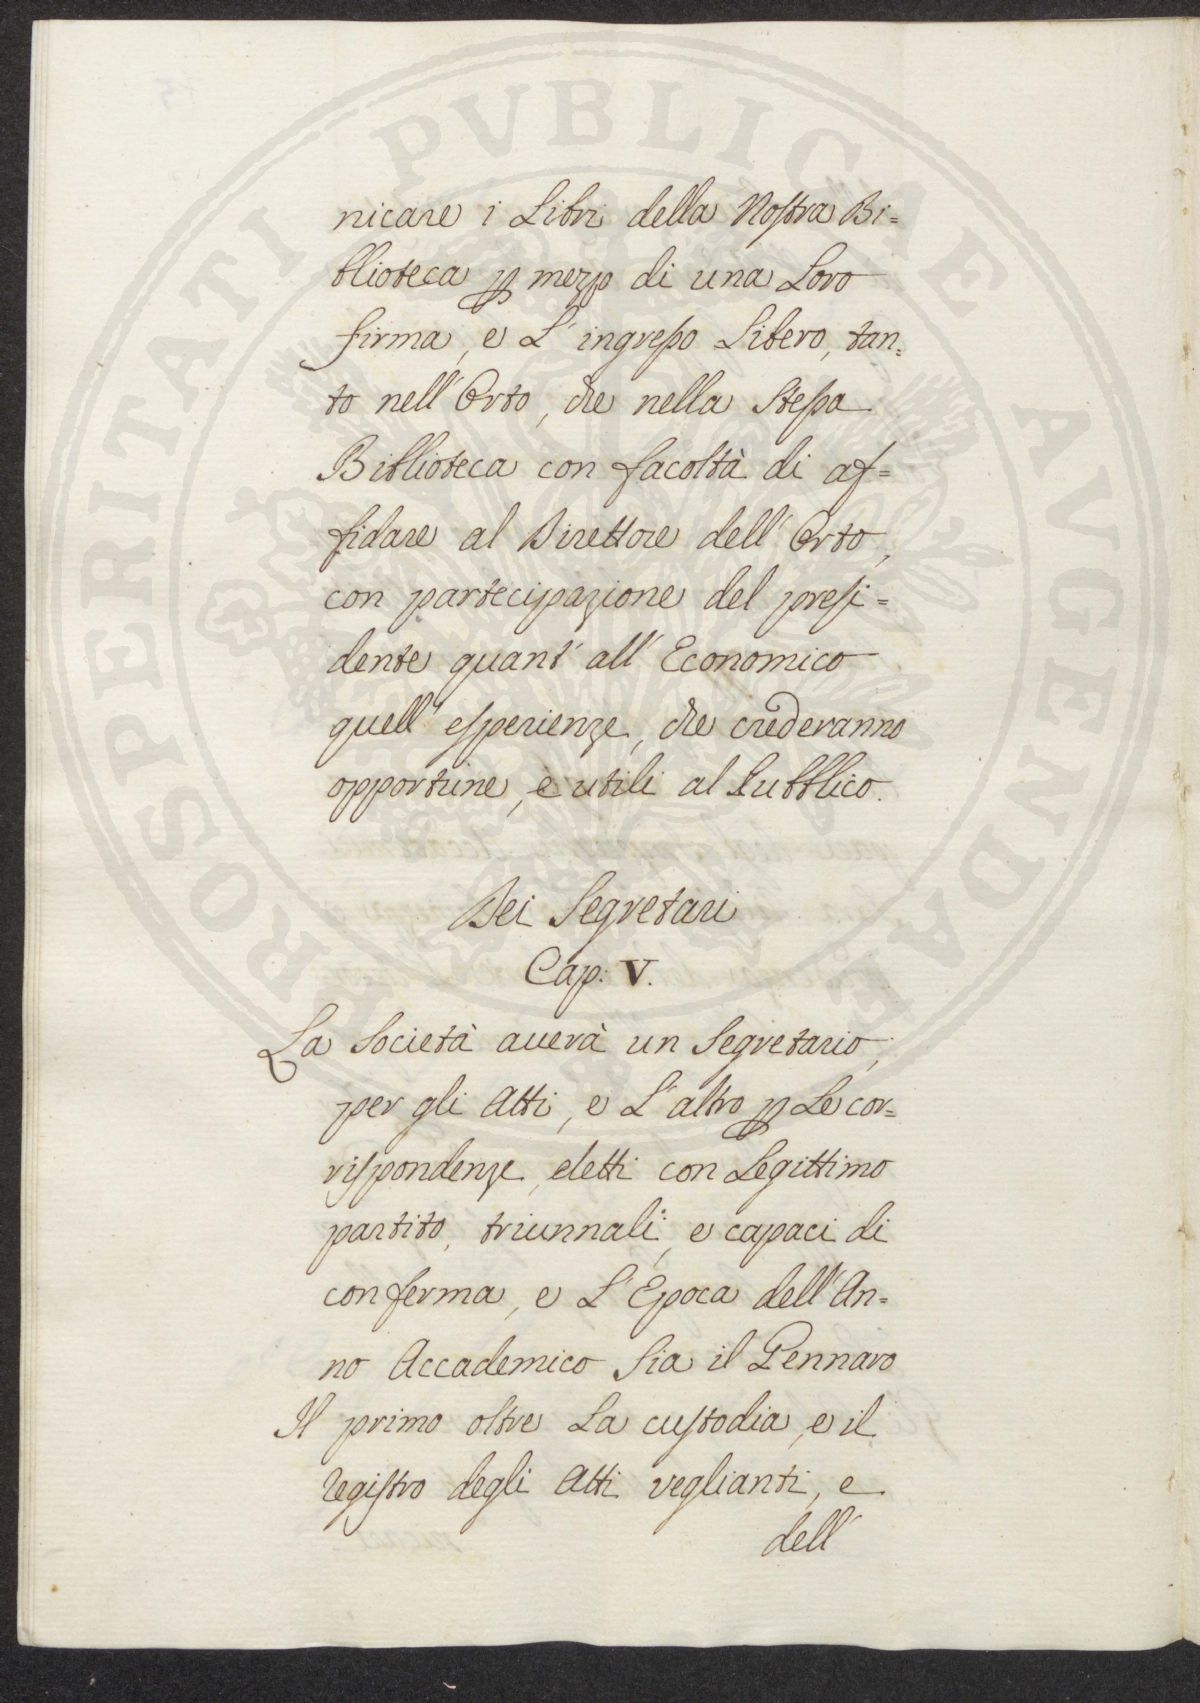 PROSPERITATI PVBLICAE AVGENDAE
nicare i Libri della Nostra Bi=
blioteca p mezzo di una Loro
firma, e L' ingresso Libero, tan=
to nell' Orto, che nella Stessa
Biblioteca con facoltà di af=
fidare al Direttore dell' Orto,
con partecipazione del presi=
dente quant' all' Economico
quell' esperienze, che crederanno
opportune, e utili al Pubblico.
Dei Segretari
Cap: V.
La Società averà un Segretario,
per gli Atti, e L' altro p Le cor=
rispondenze, eletti con Legittimo
partito, triennali, e capaci di
conferma, e L' Epoca dell' An=
no Accademico Sia il Gennaro
Il primo oltre La custodia, e il
registro degli Atti veglianti, e
dell'